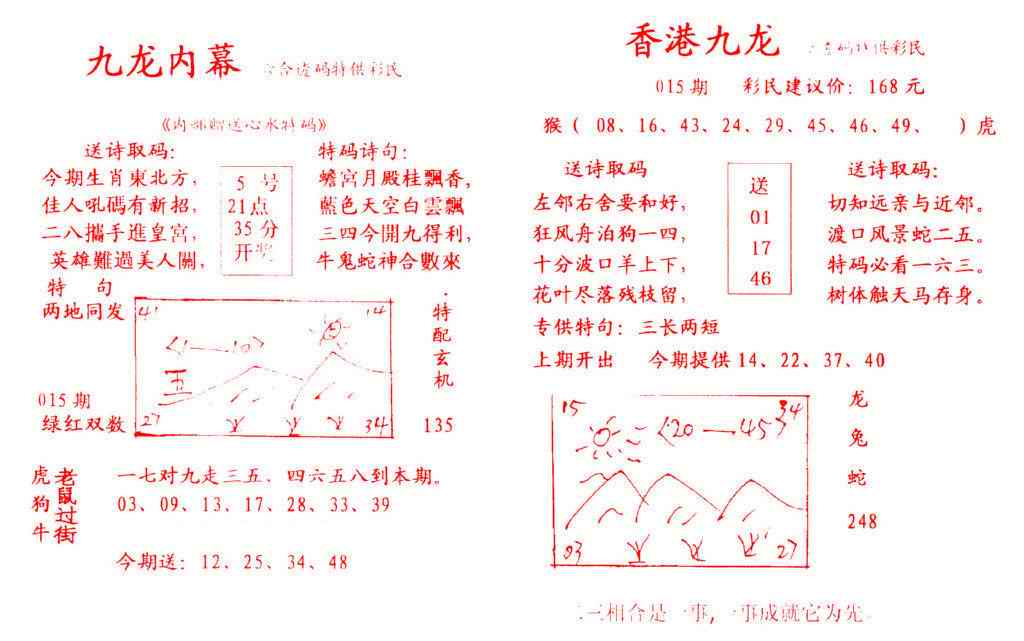 九龙内幕
合造码特供彩民
《内部赠送心水特码》
送诗取码:
今期生肖東北方,
佳人吼碼有新招,
二八攜手進皇宮,
英雄難過美人關,
5 号
21点
35分
开奖
特码诗句:
蟾宮月殿桂飄香,
藍色天空白雲飄
三四今開九得利,
牛鬼蛇神合數來
特 句
两地同发
015期
绿红双数
41
14
<1—10>
五
27
34
特配玄机
135
虎狗牛
老鼠过街
一七对九走三五、四六五八到本期。
03、09、13、17、28、33、39
今期送: 12、25、34、48
香港九龙
码特供彩民
015期 彩民建议价: 168元
猴( 08、16、43、24、29、45、46、49、 )虎
送诗取码
左邻右舍要和好,
狂风舟泊狗一四,
十分波口羊上下,
花叶尽落残枝留,
送
01
17
46
送诗取码:
切知远亲与近邻。
渡口风景蛇二五。
特码必看一六三。
树体触天马存身。
专供特句: 三长两短
上期开出 今期提供14、22、37、40
15
34
<20—45>
03
27
龙
兔
蛇
248
二三相合是一事,一事成就它为先